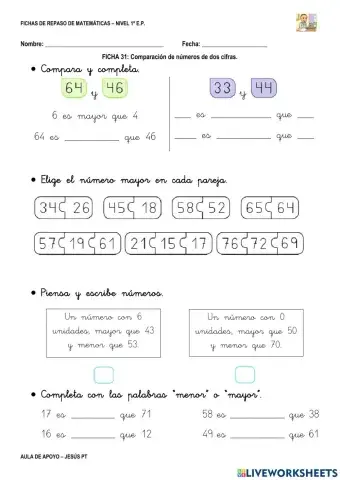 FICHAS DE REPASO DE MATEMÁTICAS – NIVEL 1º E.P.
Nombre: Fecha:
FICHA 31: Comparación de números de dos cifras.
• Compara y completa.
64 y 46
33 y 44
6 es mayor que 4
es que
64 es que 46
es que
• Elige el número mayor en cada pareja.
34 26 45 18 58 52 65 64
57 19 61 21 15 17 76 72 69
• Piensa y escribe números.
Un número con 6
unidades, mayor que 43
y menor que 53.
Un número con 0
unidades, mayor que 50
y menor que 70.
• Completa con las palabras "menor" o "mayor".
17 es que 71
58 es que 38
16 es que 12
49 es que 61
AULA DE APOYO – JESÚS PT
LIVEWORKSHEETS